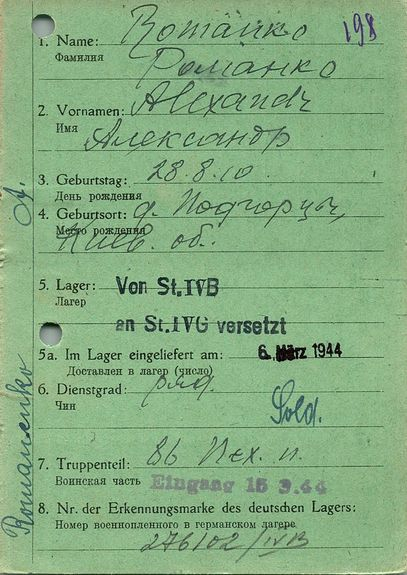 198
1. Name: Romanko
Фамилия Романко
2. Vornamen: Alexandr
Имя Александр
3. Geburtstag: 28.8.10
День рождения
4. Geburtsort: д. Подгорцы,
Место рождения Киев. об.
5. Lager: Von St.IVB
Лагер
an St.IVG versetzt
5a. Im Lager eingeliefert am: 6. März 1944
Доставлен в лагер (число)
6. Dienstgrad: ряд.
Чин Sold.
7. Truppenteil: 86 п.
Воинская часть Eingang 15 3.44
8. Nr. der Erkennungsmarke des deutschen Lagers:
Номер военнопленного в германском лагере
276102/IVB
Romanenko